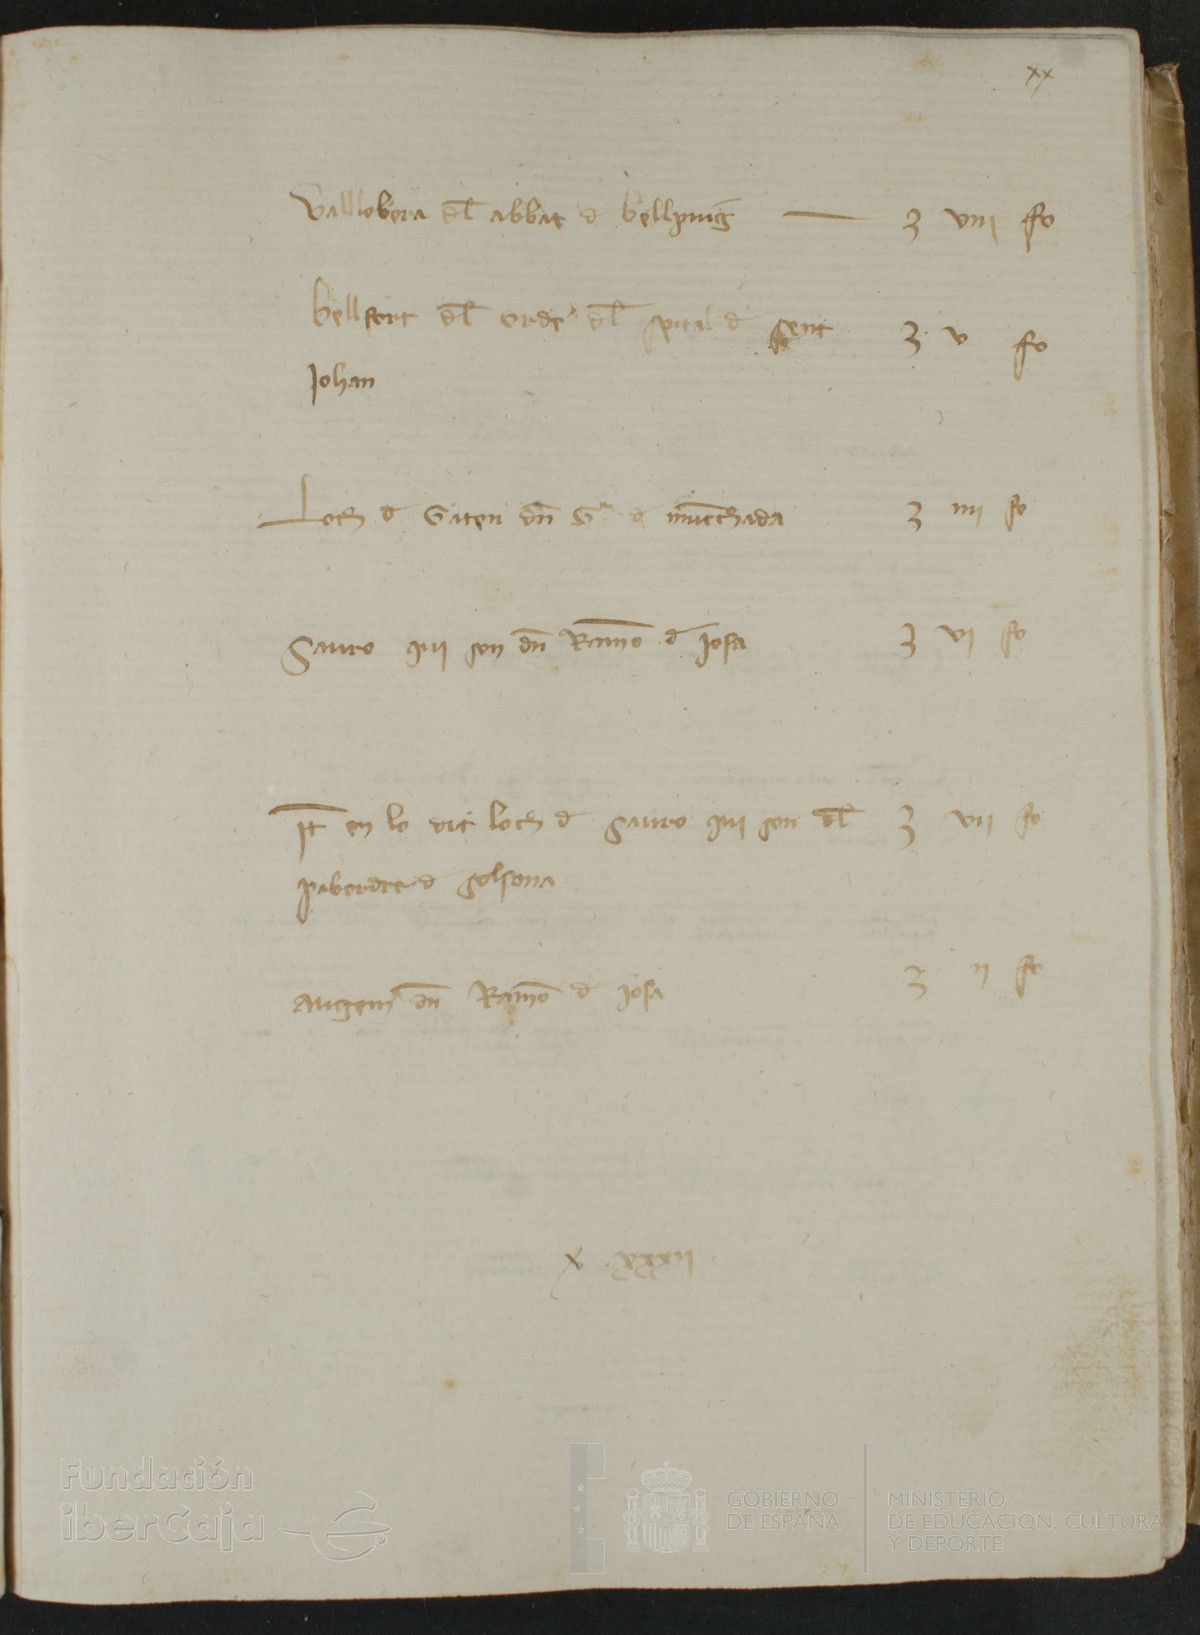 xx
Vallobera dl abbat d bellpuig — 3 viii fo
bellfort dl orde dl spital d sent 3 v fo
Johan
Loch d Gaten dn G d muntchada 3 iiii fo
Sauro qui son dn Ramo d Josa 3 vi fo
It en lo dit loch d Sauro qui son dl 3 vii fo
paborde d Solsona
dn Ramo d Josa 3 ii fo
x xxxii
Fundación
iberCaja
GOBIERNO
DE ESPAÑA
MINISTERIO
DE EDUCACIÓN, CULTURA
Y DEPORTE